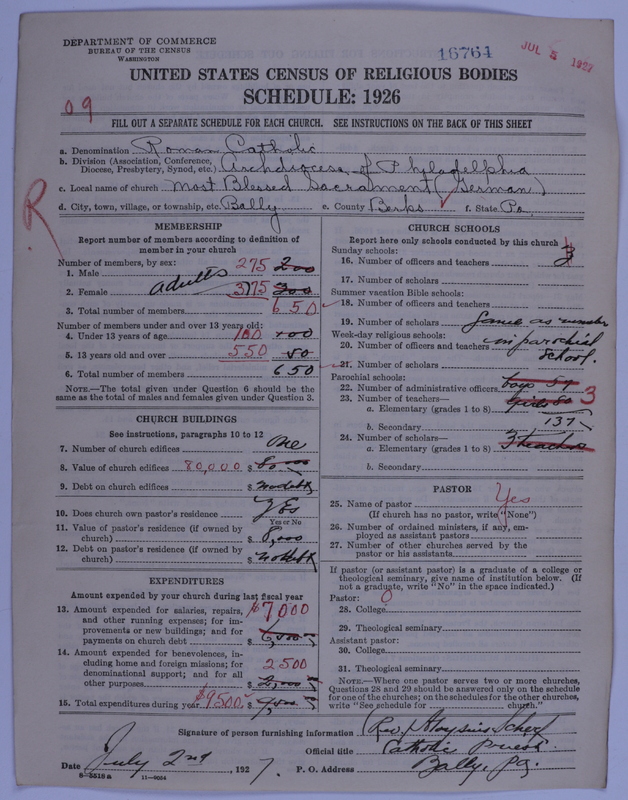 DEPARTMENT OF COMMERCE
BUREAU OF THE CENSUS
WASHINGTON
16764
JUL 5 1927
UNITED STATES CENSUS OF RELIGIOUS BODIES
SCHEDULE: 1926
09
FILL OUT A SEPARATE SCHEDULE FOR EACH CHURCH. SEE INSTRUCTIONS ON THE BACK OF THIS SHEET
a. Denomination Roman Catholic
b. Division (Association, Conference, Diocese, Presbytery, Synod, etc.) Archdiocese of Philadelphia
c. Local name of church Most Blessed Sacrament (German)
d. City, town, village, or township, etc. Bally e. County Berks f. State Pa.
R
MEMBERSHIP
Report number of members according to definition of member in your church
Number of members, by sex:
1. Male 275 200
adults
2. Female 375 300
3. Total number of members 650
Number of members under and over 13 years old:
4. Under 13 years of age 100
5. 13 years old and over 550 50
6. Total number of members 650
NOTE.—The total given under Question 6 should be the same as the total of males and females given under Question 3.
CHURCH BUILDINGS
See instructions, paragraphs 10 to 12
7. Number of church edifices One
8. Value of church edifices 80,000 $
9. Debt on church edifices $ no debt
10. Does church own pastor's residence Yes
Yes or No
11. Value of pastor's residence (if owned by church) $ 8,000
12. Debt on pastor's residence (if owned by church) $ no debt
EXPENDITURES
Amount expended by your church during last fiscal year
13. Amount expended for salaries, repairs, and other running expenses; for improvements or new buildings; and for payments on church debt $ 7,000
14. Amount expended for benevolences, including home and foreign missions; for denominational support; and for all other purposes $ 2500 2,000
15. Total expenditures during year $9500
CHURCH SCHOOLS
Report here only schools conducted by this church
Sunday schools:
16. Number of officers and teachers
17. Number of scholars
Summer vacation Bible schools:
18. Number of officers and teachers
19. Number of scholars Same as number
Week-day religious schools:
20. Number of officers and teachers in parochial school.
21. Number of scholars
Parochial schools:
22. Number of administrative officers boys 57
23. Number of teachers— girls 80 3
a. Elementary (grades 1 to 8)
b. Secondary 137
24. Number of scholars—
a. Elementary (grades 1 to 8) 3 teachers
b. Secondary
PASTOR
25. Name of pastor Yes
(If church has no pastor, write "None")
26. Number of ordained ministers, if any, employed as assistant pastors
27. Number of other churches served by the pastor or his assistants
If pastor (or assistant pastor) is a graduate of a college or theological seminary, give name of institution below. (If not a graduate, write "No" in the space indicated.)
Pastor: 0
28. College
29. Theological seminary
Assistant pastor:
30. College
31. Theological seminary
NOTE.—Where one pastor serves two or more churches, Questions 28 and 29 should be answered only on the schedule for one of the churches; on the schedules for the other churches, write "See schedule for church."
Signature of person furnishing information Rev. Aloysius Scherf
Official title Catholic Priest
Date July 2nd 1927. P. O. Address Bally, Pa.
8-5518a 11-9034